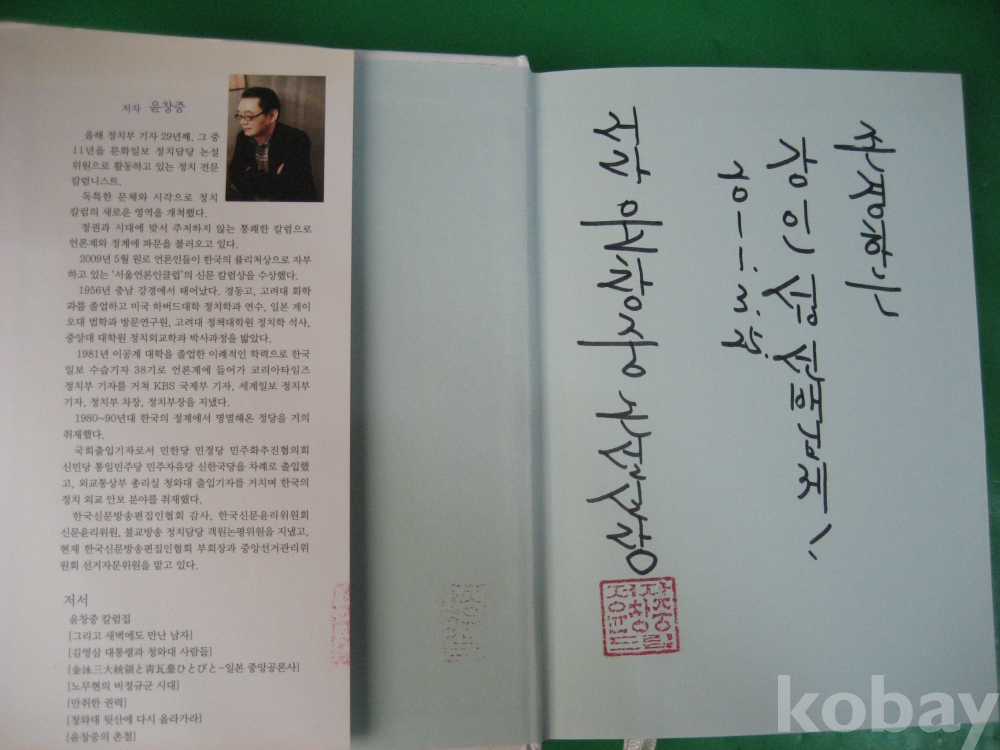 저자 윤창중
올해 정치부 기자 29년째, 그 중
11년을 문화일보 정치담당 논설
위원으로 활동하고 있는 정치 전문
칼럼니스트.
독특한 문체와 시각으로 정치
칼럼의 새로운 영역을 개척했다.
정권과 시대에 맞서 주저하지 않는 통쾌한 칼럼으로
언론계와 정계에 파문을 불러오고 있다.
2009년 5월 원로 언론인들이 한국의 퓰리처상으로 자부
하고 있는 '서울언론인클럽'의 신문 칼럼상을 수상했다.
1956년 충남 강경에서 태어났다. 경동고, 고려대 화학
과를 졸업하고 미국 하버드대학 정치학과 연수, 일본 게이
오대 법학과 방문연구원, 고려대 정책대학원 정치학 석사,
중앙대 대학원 정치외교학과 박사과정을 밟았다.
1981년 이공계 대학을 졸업한 이례적인 학력으로 한국
일보 수습기자 38기로 언론계에 들어가 코리아타임즈
정치부 기자를 거쳐 KBS 국제부 기자, 세계일보 정치부
기자, 정치부 차장, 정치부장을 지냈다.
1980~90년대 한국의 정계에서 명멸해온 정당을 거의
취재했다.
국회출입기자로서 민한당 민정당 민주화추진협의회
신민당 통일민주당 민주자유당 신한국당을 차례로 출입했
고, 외교통상부 총리실 청와대 출입기자를 거치며 한국의
정치 외교 안보 분야를 취재했다.
한국신문방송편집인협회 감사, 한국신문윤리위원회
신문윤리위원, 불교방송 정치담당 객원논평위원을 지냈고,
현재 한국신문방송편집인협회 부회장과 중앙선거관리위
원회 선거자문위원을 맡고 있다.
저서
윤창중 칼럼집
[그리고 새벽에도 만난 남자]
[김영삼 대통령과 청와대 사람들]
[金泳三大統領と靑瓦臺ひとびと-일본 중앙공론사]
[노무현의 비정규군 시대]
[만취한 권력]
[청와대 뒷산에 다시 올라가라]
[윤창중의 촌철]
존경하는
선배님께
저자 윤창중
kobay